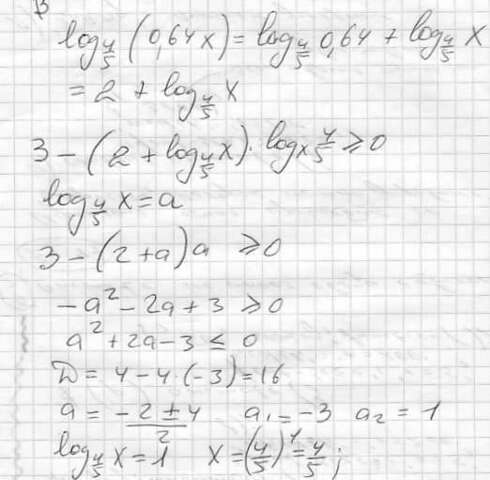 log_{4/5} (0,64x) = log_{4/5} 0,64 + log_{4/5} x
= 2 + log_{4/5} x
3 - (2 + log_{4/5} x) · log_x 4/5 ≥ 0
log_{4/5} x = a
3 - (2 + a) a ≥ 0
-a² - 2a + 3 ≥ 0
a² + 2a - 3 ≤ 0
D = 4 - 4·(-3) = 16
a = (-2 ± 4)/2 a₁ = -3 a₂ = 1
log_{4/5} x = 1 x = (4/5)¹ = 4/5 ;